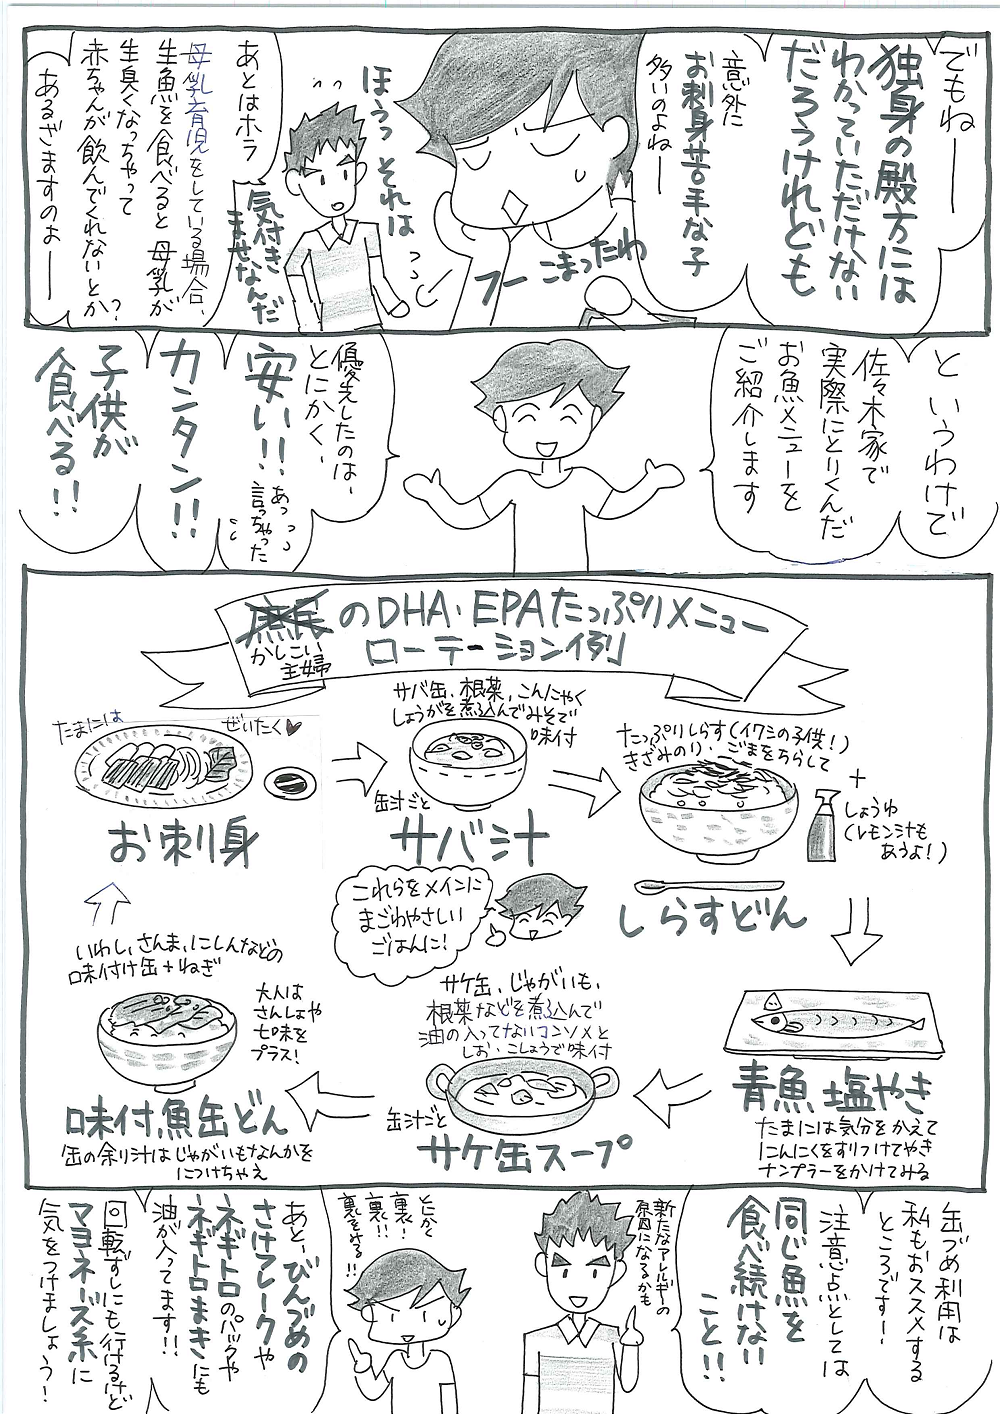 でもね——
独身の殿方には
わかっていただけない
だろうけれども
意外に
お刺身苦手な子
多いのよね—
フー こまったわ
ほうっ それは
気付き
ませなんだ
あとはホラ
母乳育児をしている場合、
生魚を食べると 母乳が
生臭くなっちゃって
赤ちゃんが飲んでくれないとか?
あるざますのよ——
と いうわけで
佐々木家で
実際にとりくんだ
お魚メニューを
ご紹介します
優先したのは、
とにかく、
安い!!
あっ
言っちゃった
カンタン!!
子供が
食べる!!
庶民
かしこい
主婦
のDHA・EPAたっぷりメニュー
ローテーション例
たまには
ぜいたく♥
お刺身
サバ缶、根菜、こんにゃく
しょうがを煮込んでみそで
味付
缶汁ごと
サバ汁
たっぷりしらす(イワシの子供!)
きざみのり、ごまをちらして
+
しょうゆ
(レモン汁も
あうよ!)
しらすどん
青魚 塩やき
たまには気分をかえて
にんにくをすりつけてやき
ナンプラーをかけてみる
サケ缶、じゃがいも、
根菜などを煮込んで
油の入ってないコンソメと
しお、こしょうで味付
缶汁ごと
サケ缶スープ
いわし、さんま、にしんなどの
味付け缶+ねぎ
大人は
さんしょや
七味を
プラス!
味付魚缶どん
缶の余り汁はじゃがいもなんかを
につけちゃえ
これらをメインに
まごわやさしい
ごはんに!
缶づめ利用は
私もおススメする
ところです!
注意点としては
同じ魚を
食べ続けない
こと!!
新たなアレルギーの
原因になるかも
とにかく
裏!
裏!!
裏をみる!!
あと、びんづめの
さけフレークや
ネギトロのパックや
ネギトロまきにも
油が入ってます!!
回転ずしにも行けるけど
マヨネーズ系に
気をつけましょう!